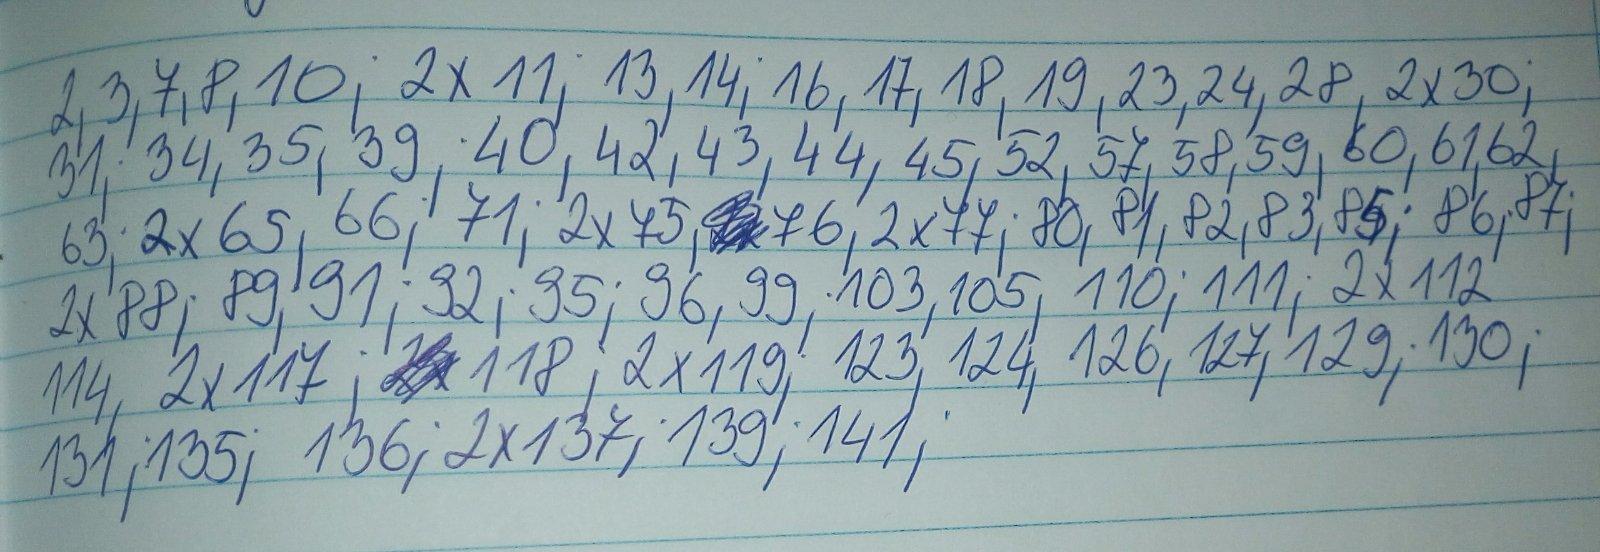 2, 3, 7, 8, 10; 2x 11; 13, 14; 16, 17, 18, 19, 23, 24, 28, 2x30;
31; 34, 35, 39, 40, 42, 43, 44, 45, 52, 57, 58, 59, 60, 61, 62,
63; 2x65, 66; 71; 2x75, 76, 2x77; 80, 81, 82, 83, 85; 86, 87;
2x88; 89, 91; 92; 95; 96, 99; 103, 105, 110; 111; 2x112
114, 2x117; 118; 2x119; 123, 124, 126, 127, 129; 130;
131; 135; 136; 2x137; 139; 141;